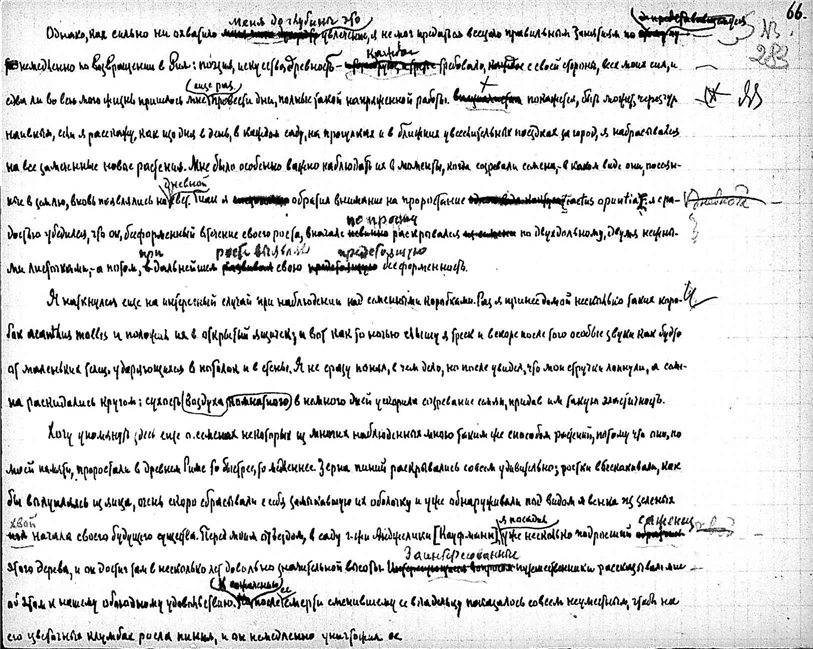 66.
283
меня до глубины это
Однако, как сильно ни охватило увлечение, я не мог предаться всецело правильным занятиям по
немедленно по возвращении в Рим: поэзия, искусство, древность – каждое требовало, с своей стороны, все мои силы, и
едва ли во всю мою жизнь пришлось мне еще раз провести дни, полные такой напряженной работы. покажется, быть может, чересчур
наивным, если я расскажу, как изо дня в день, в каждом саду, на прогулках и в ближних увеселительных поездках за город, я набрасывался
на все замеченные новые растения. Мне было особенно важно наблюдать их в моменты, когда созревали семена, – в каком виде они, посеян-
ные в землю, вновь появлялись на дневной свет. Так я обратил внимание на прорастание cactus opuntia и с ра-
достью убедился, что он, бесформенный в течение своего роста, вначале попросту раскрывался по двудольному, двумя нежны-
ми листочками, – а потом, при дальнейшем росте выявлял свою предстоящую бесформенность.
Я наткнулся еще на интересный случай при наблюдении над семенными коробками. Раз я принес домой несколько таких коро-
бок acanthus molles и положил их в открытый ящичек; и вот как-то ночью слышу я треск и вскоре после того особые звуки как будто
от маленьких телец, ударяющихся в потолок и в стены. Я не сразу понял, в чем дело, но после увидел, что мои стручки лопнули, а семе-
на раскидались кругом: сухость воздуха комнатного в немного дней ускорила созревание семян, придав им такую эластичность.
Хочу упомянуть здесь еще о семенах некоторых из многих наблюденных мною таким же способом растений, потому что они, по
моей памяти, прорастали в древнем Риме то быстрее, то медленнее. Зерна пиний раскрывались совсем удивительно; ростки выскакивали, как
бы вылупляясь из яйца, очень скоро сбрасывали с себя замыкавшую их оболочку и уже обнаруживали под видом венка из зеленых
хвой начала своего будущего существа. Перед моим отъездом, в саду г-жи Анджелики [Кауфманн] я посадил уже несколько подросший саженец
этого дерева, и он достиг там в несколько лет довольно значительной высоты. Заинтересованные путешественники рассказывали мне
об этом к нашему обоюдному удовольствию. К сожалению, после ее смерти сменившему ее владельцу показалось совсем неуместным, чтобы на
его цветочных клумбах росла пиния, и он немедленно уничтожил ее